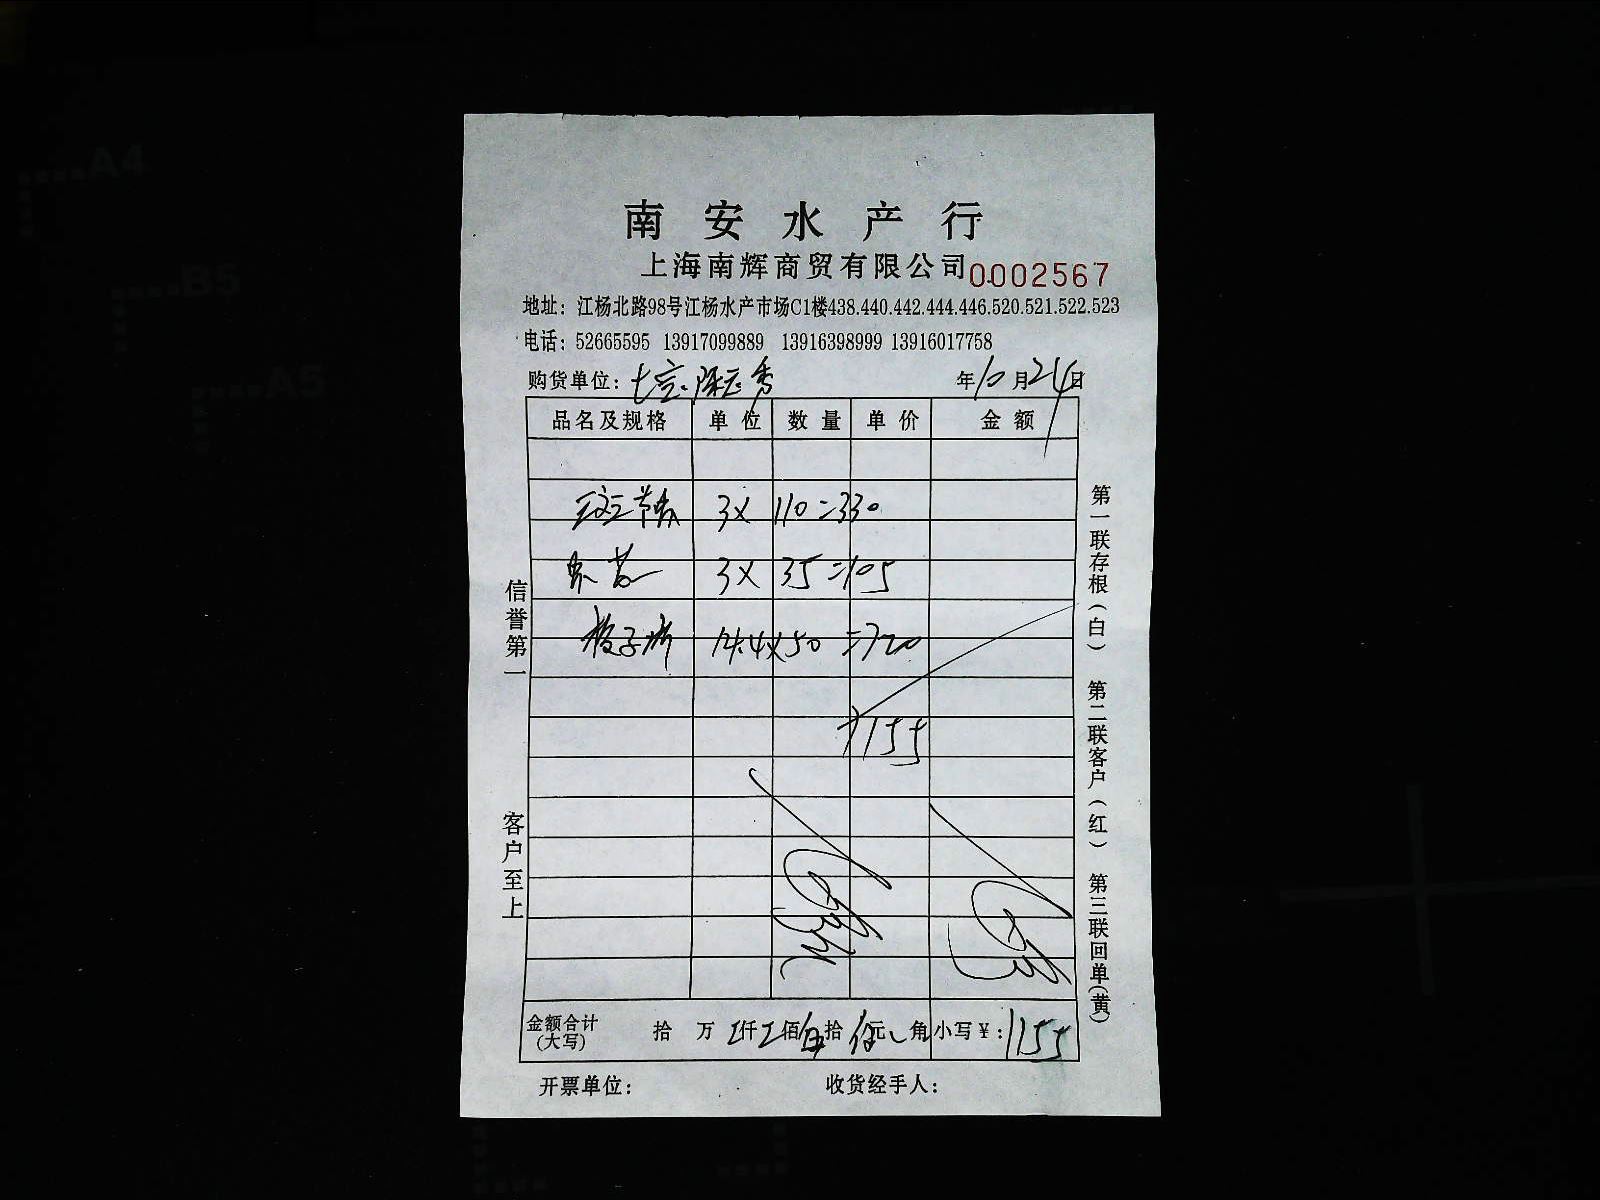 A4
B5
A5
南安水产行
上海南辉商贸有限公司 0002567
地址：江杨北路98号江杨水产市场C1楼438.440.442.444.446.520.521.522.523
电话：52665595 13917099889 13916398999 13916017758
购货单位： 年10月24日
品名及规格 单位 数量 单价 金额
3X 110=330
3X 35=105
14.4X50=720
1155
金额合计(大写) 拾 万 仟 佰 伍拾 伍元 角 小写¥：1155
开票单位： 收货经手人：
信誉第一
客户至上
第一联存根(白) 第二联客户(红) 第三联回单(黄)